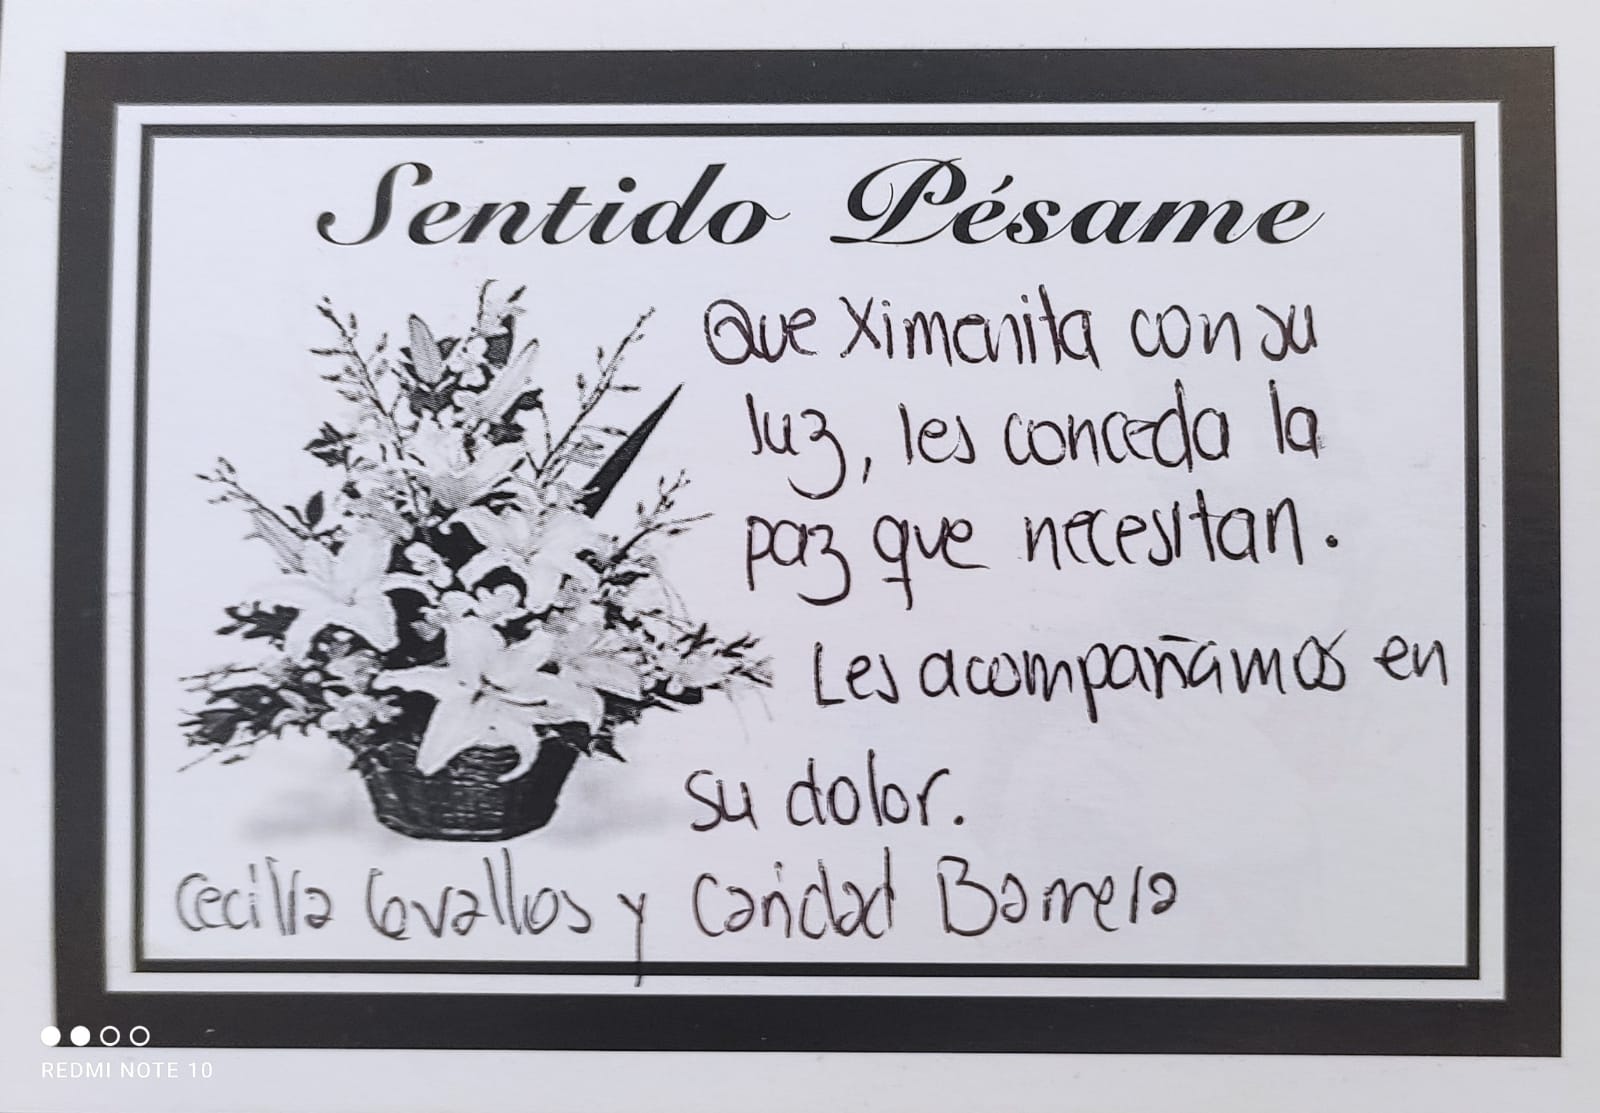 Sentido Pésame
Que Ximenita con su
luz, les conceda la
paz que necesitan.
Les acompañamos en
su dolor.
Cecilia Cevallos y Caridad Barrera
REDMI NOTE 10